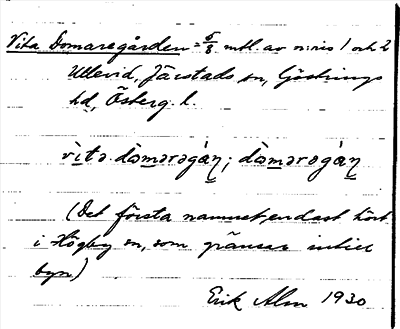 Vita Domaregården = 5/8 mtl. av n:ris 1 och 2
Ullevid, Järstads sn, Göstrings
hd, Österg. l.
vìtə dòmərəgàɳ; dòmərəgàɳ
(Det första namnet endast hört
i Högby sn, som gränsar intill
byn)
Erik Alm 1930